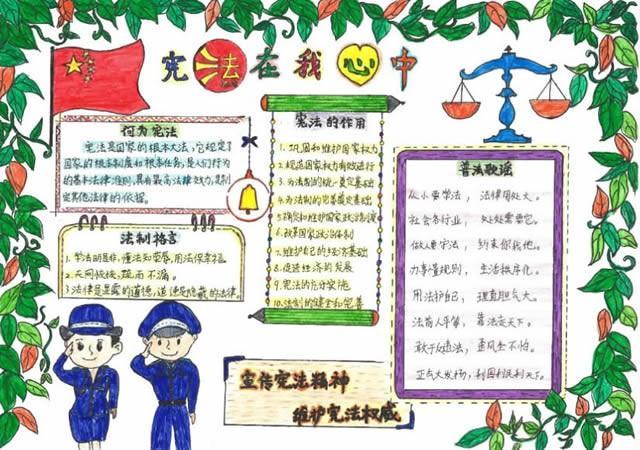 宪法在我心中
何为宪法
宪法是国家的根本大法,它规定了
国家的根本制度和根本任务,是人们行为
的基本法律准则,具有最高法律效力,是制
定其他法律的依据。
法制格言
1.学法明是非,懂法知荣辱,用法保幸福。
2.天网恢恢,疏而不漏。
3.法律是显露的道德,道德是隐藏的法律。
宪法的作用
1.巩固和维护国家权力
2.规范国家权力有效进行
3.为法制的统一奠定基础
4.为法制的完善奠定基础
5.确认和维护国家政治制度
6.改革国家政治体制
7.维护自己的经济基础
8.促进经济的发展
9.宪法的充分实施
10.法制的健全和完善
普法歌谣
从小要学法,法律用处大。
社会各行业,处处需要它。
做人要守法,约束你我他。
办事懂规则,生活秩序化。
用法护自己,理直胆气大。
法前人平等,靠法走天下。
敢于斗违法,歪风全不怕。
正气大发扬,利国利民利天下。
宣传宪法精神
维护宪法权威